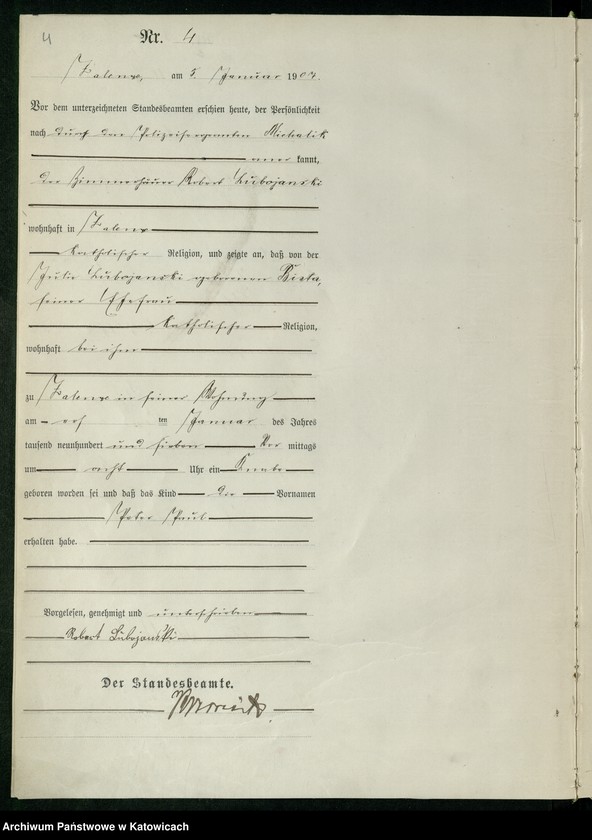 4
Nr. 4
am 5. Januar 1907.
Vor dem unterzeichneten Standesbeamten erschien heute, der Persönlichkeit
nach durch den Polizeisergeanten
kannt,
der Zimmerhäuer Robert Lubojanski
wohnhaft in
katholischer Religion, und zeigte an, daß von der
Julie Lubojanski geborenen
seiner Ehefrau
katholischer Religion,
wohnhaft bei ihm
zu in seiner Wohnung
am ten Januar des Jahres
tausend neunhundert und sieben Vor mittags
um acht Uhr ein Knabe
geboren worden sei und daß das Kind die Vornamen
Peter Paul
erhalten habe.
Vorgelesen, genehmigt und unterschrieben
Robert Lubojański
Der Standesbeamte.
Archiwum Państwowe w Katowicach